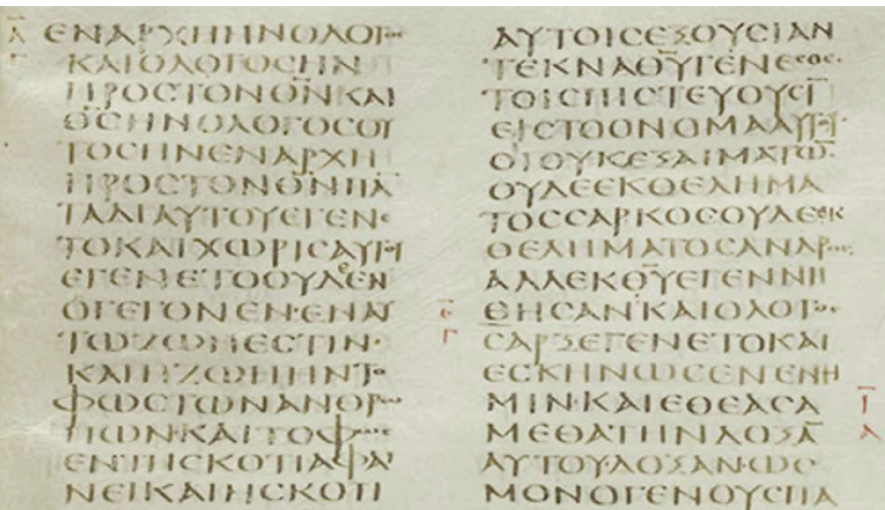 Α̅
Γ
ΕΝΑΡΧΗΗΝΟΛΟΓΟϹ
ΚΑΙΟΛΟΓΟϹΗΝ
ΠΡΟϹΤΟΝΘ̅Ν̅ΚΑΙ
Θ̅Ϲ̅ΗΝΟΛΟΓΟϹΟΥ
ΤΟϹΗΝΕΝΑΡΧΗ
ΠΡΟϹΤΟΝΘ̅Ν̅ΠΑ̅
ΤΑΔΙΑΥΤΟΥΕΓΕΝΕ
ΤΟΚΑΙΧΩΡΙϹΑΥΤΟΥ
ΕΓΕΝΕΤΟΟΥΔΕΝ
ΟΓΕΓΟΝΕΝ·ΕΝΑΥ
ΤΩΖΩΗΕϹΤΙΝ·
ΚΑΙΗΖΩΗΗΝΤΟ
ΦΩϹΤΩΝΑΝΘΡΩ
ΠΩΝ·ΚΑΙΤΟΦΩϹ
ΕΝΤΗϹΚΟΤΙΑΦΑΙ
ΝΕΙΚΑΙΗϹΚΟΤΙ
ΑΥΤΟΙϹΕΞΟΥϹΙΑΝ
ΤΕΚΝΑΘ̅Υ̅ΓΕΝΕϹΘΑΙ
ΤΟΙϹΠΙϹΤΕΥΟΥϹΙ̅
ΕΙϹΤΟΟΝΟΜΑΑΥΤΟΥ
ΟΙΟΥΚΕΞΑΙΜΑΤΩ̅
ΟΥΔΕΕΚΘΕΛΗΜΑ
ΤΟϹϹΑΡΚΟϹΟΥΔΕΕΚ
ΘΕΛΗΜΑΤΟϹΑΝΔΡΟϹ
ΑΛΛΕΚΘ̅Υ̅ΕΓΕΝΝΗ
ΘΗϹΑΝ·ΚΑΙΟΛΟΓΟϹ
Ε̅
Γ
ϹΑΡΞΕΓΕΝΕΤΟΚΑΙ
ΕϹΚΗΝΩϹΕΝΕΝΗ
ΜΙΝ·ΚΑΙΕΘΕΑϹΑ
Ι̅
Α
ΜΕΘΑΤΗΝΔΟΞΑ̅
ΑΥΤΟΥ·ΔΟΞΑΝ·ΩϹ
ΜΟΝΟΓΕΝΟΥϹΠΑ